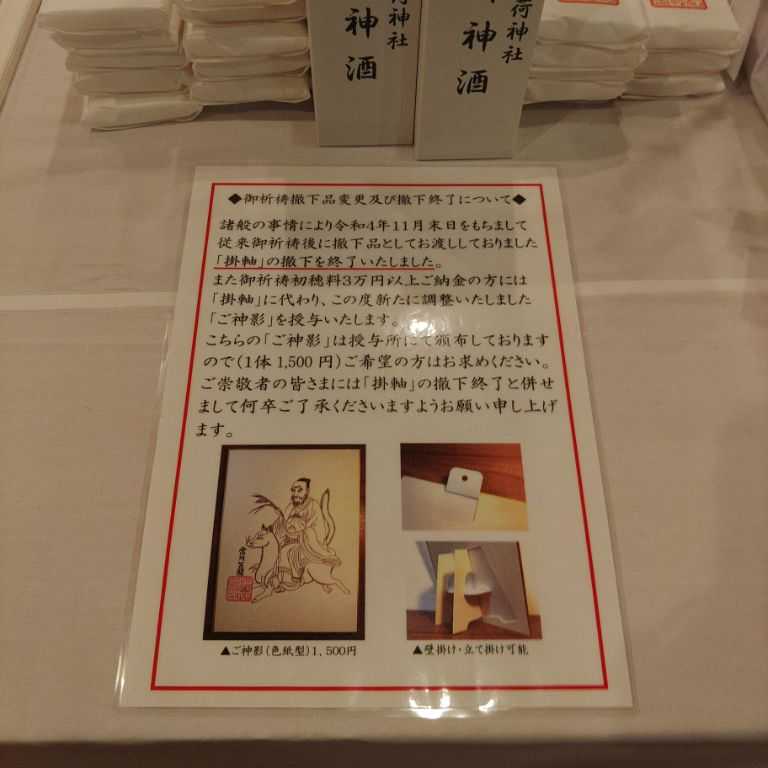 荷神社
神酒
荷神社
神酒
◆御祈祷撤下品変更及び撤下終了について◆
諸般の事情により令和4年11月末日をもちまして
従来御祈祷後に撤下品としてお渡ししておりました
「掛軸」の撤下を終了いたしました。
また御祈祷初穂料3万円以上ご納金の方には
「掛軸」に代わり、この度新たに調整いたしました
「ご神影」を授与いたします。
こちらの「ご神影」は授与所にて頒布しております
ので(1体 1,500 円)ご希望の方はお求めください。
ご崇敬者の皆さまには「掛軸」の撤下終了と併せ
まして何卒ご了承くださいますようお願い申し上げ
ます。
▲ご神影(色紙型)1,500円
▲壁掛け・立て掛け可能